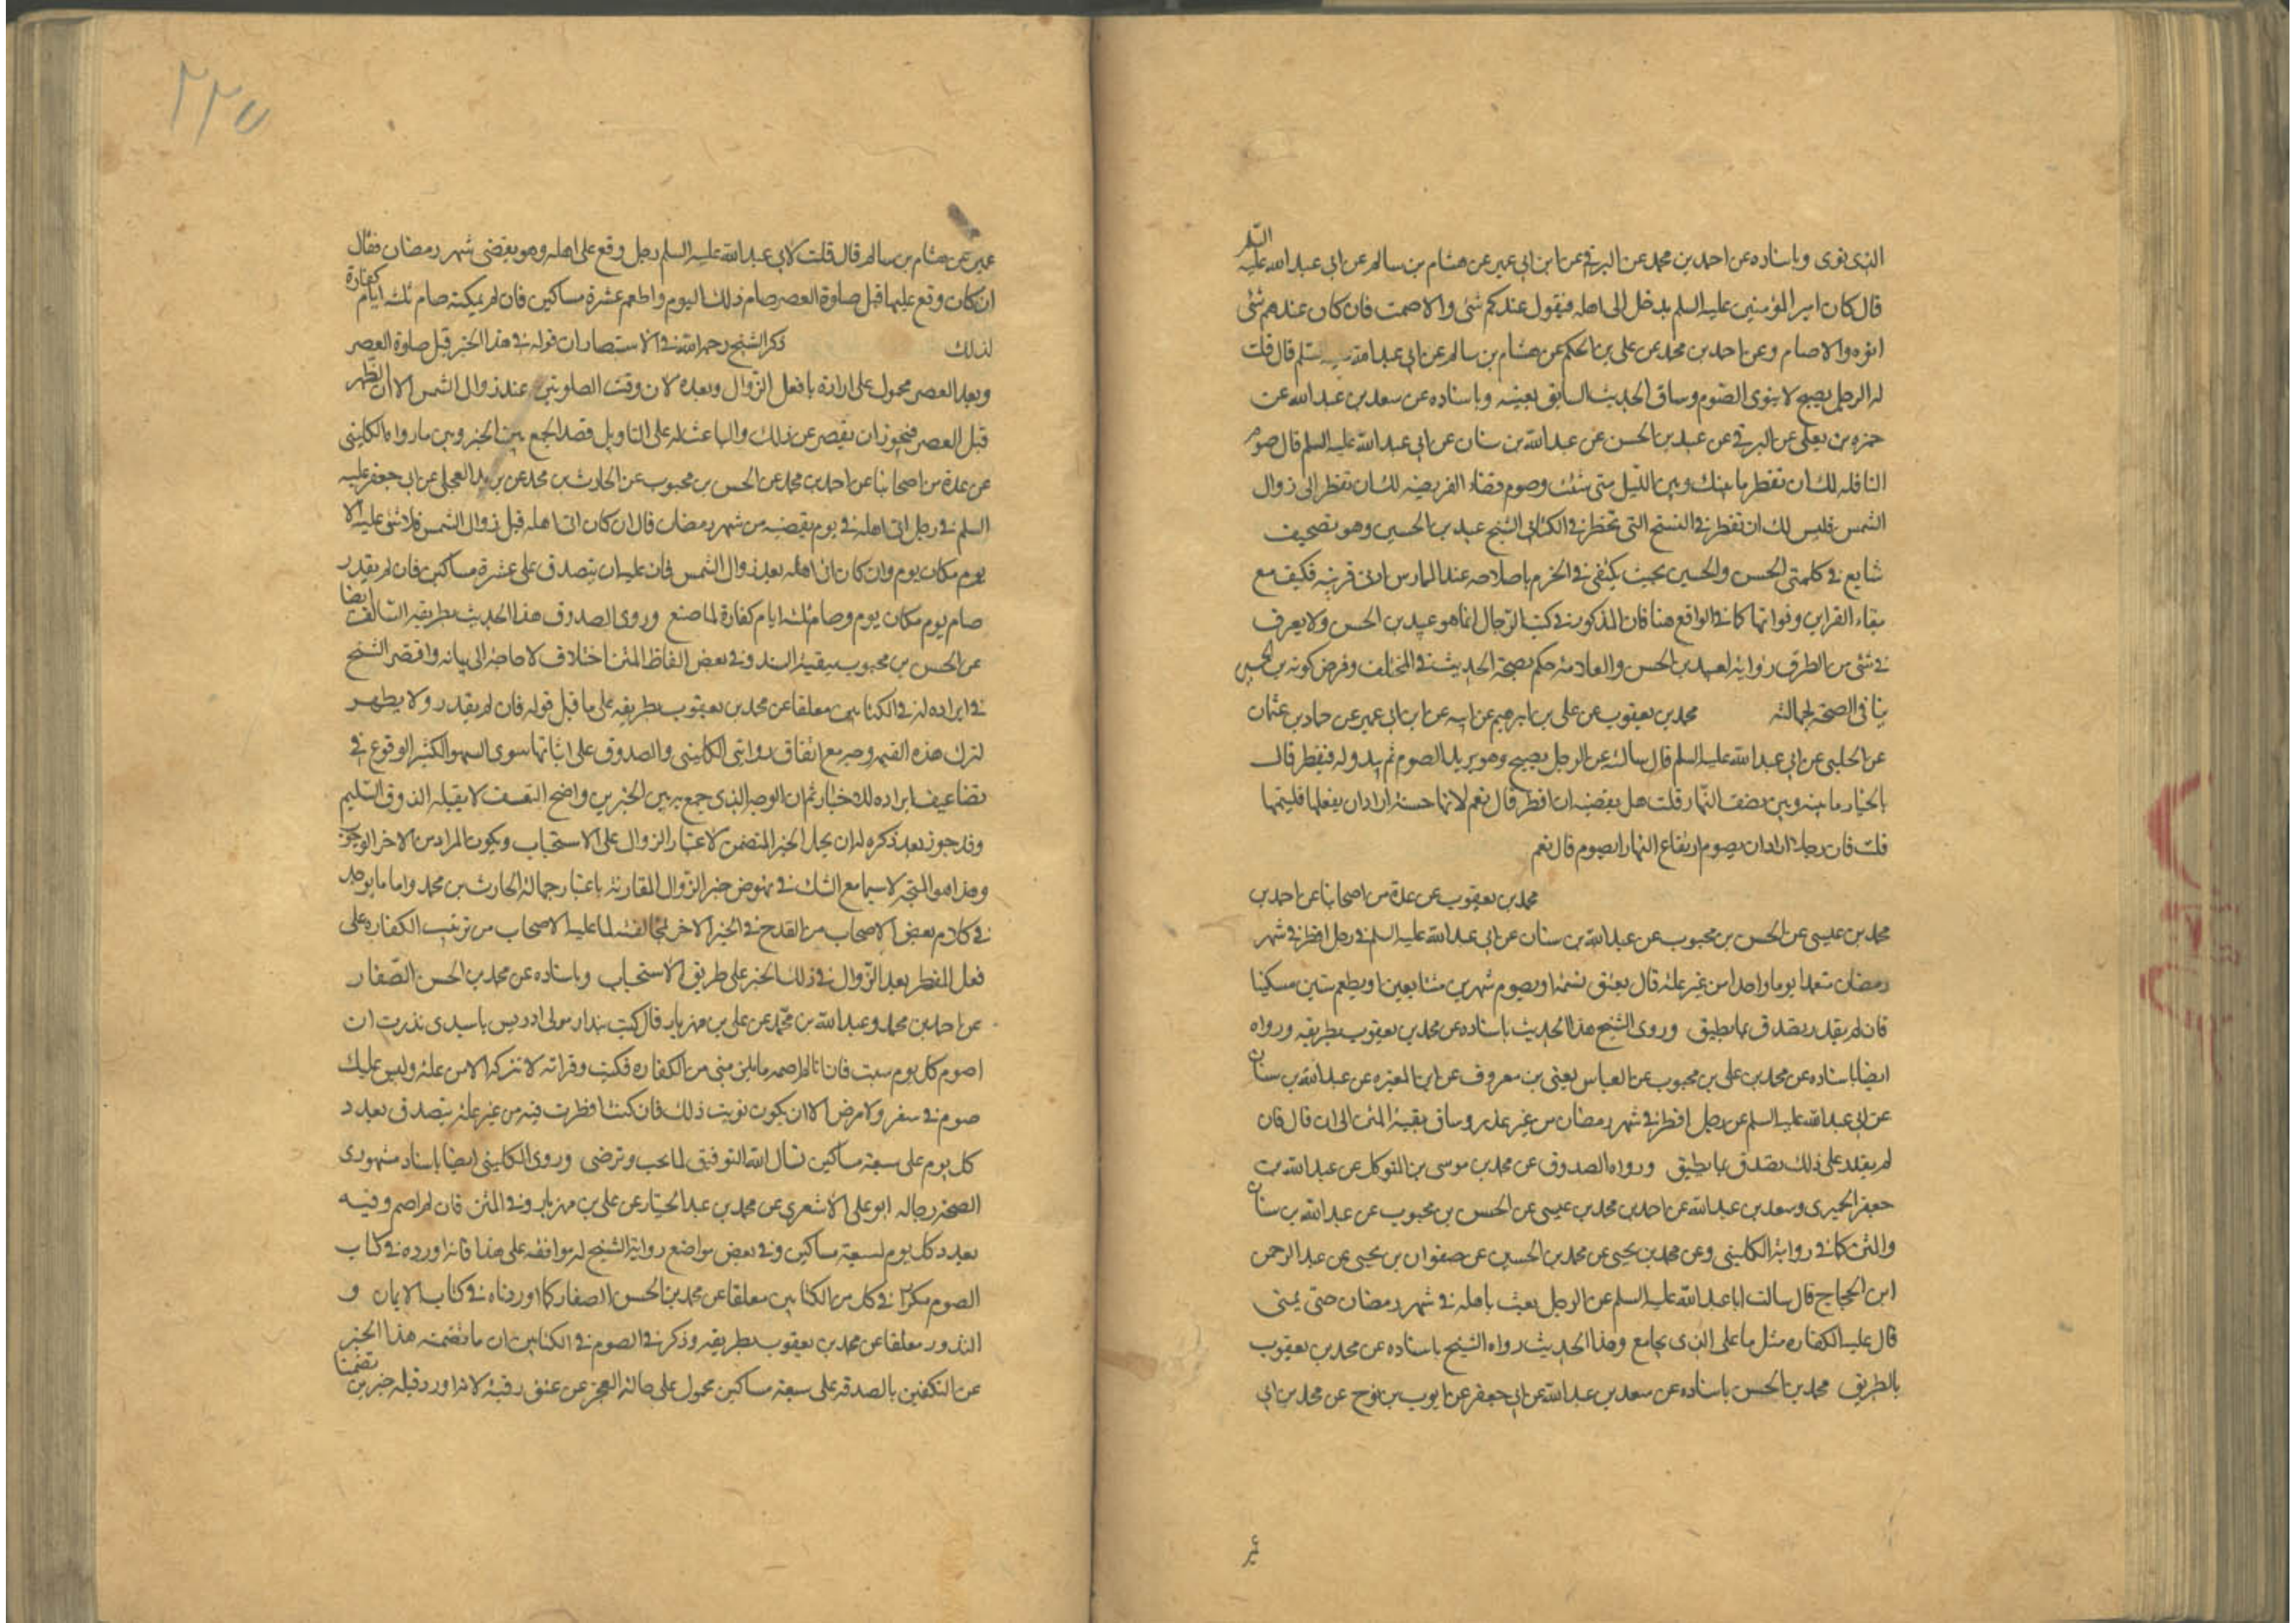 الذي نوى وباسناده عن احمد بن محمد عن البرقي عن ابن ابي عمير عن هشام بن سالم عن ابي عبد الله عليه السلم
قال كان امير المؤمنين عليه السلم يدخل الى اهله فيقول عندكم شئ والا صمت فان كان عندهم شئ
اتوه والا صام وعن احمد بن محمد عن علي بن الحكم عن هشام بن سالم عن ابي عبد الله عليه سلم قال قلت
له الرجل يصبح لا ينوى الصوم وساق الحديث السابق بعينه وباسناده عن سعد بن عبد الله عن
حمزه بن يعلى عن البرقي عن عبيد بن الحسن عن عبد الله بن سنان عن ابي عبد الله عليه السلم قال صوم
النافله لك ان تفطر ما بينك وبين الليل متى شئت وصوم قضاء الفريضه لك ان تفطر الى زوال
الشمس فليس لك ان تفطر في النسخ التي تحظر في الكتابي الشيخ عبيد بن الحسين وهو تصحيف
شايع في كلمتي الحسن والحسين بحيث يكتفى في الجزم باصلاحه عند الممارس ادنى قرينه فكيف مع
بقاء القراين وفواتها كما في الواقع هنا فان المذكور في كتب الرجال انما هو عبيد بن الحسن ولا يعرف
في شئ من الطرق رواية لعبيد بن الحسن والعلامة حكم بصحة الحديث في المختلف وفرض كونه بن الحسين
ينافي الصحة لجهالته محمد بن يعقوب عن علي بن ابرهيم عن ابيه عن ابن ابي عمير عن حماد بن عثمان
عن الحلبي عن ابي عبد الله عليه السلم قال سالته عن الرجل يصبح وهو يريد الصوم ثم يبدو له فيفطر قال
بالخيار ما بينه وبين نصف النهار قلت هل يقضيه ان افطر قال نعم لانها حسنة اراد ان يفعلها فليتمها
قلت فان رجلا اراد ان يصوم ارتفاع النهار ايصوم قال نعم
محمد بن يعقوب عن عدة من اصحابنا عن احمد بن
محمد بن عيسى عن الحسن بن محبوب عن عبد الله بن سنان عن ابي عبد الله عليه السلم في رجل افطر في شهر
رمضان متعمدا يوما واحدا من غير علة قال يعتق نسمة او يصوم شهرين متتابعين او يطعم ستين مسكينا
فان لم يقدر تصدق بما يطيق وروى الشيخ هذا الحديث باسناده عن محمد بن يعقوب بطريقه ورواه
ايضا باسناده عن محمد بن علي بن محبوب عن العباس يعني بن معروف عن ابن المغيره عن عبد الله بن سنان
عن ابي عبد الله عليه السلم عن رجل افطر في شهر رمضان من غير عذر وساق بقية المتن الى ان قال فان
لم يقدر على ذلك تصدق بما يطيق ورواه الصدوق عن محمد بن موسى بن المتوكل عن عبد الله بن
جعفر الحميرى وسعد بن عبد الله عن احمد بن محمد بن عيسى عن الحسن بن محبوب عن عبد الله بن سنان
والمتن كما في رواية الكليني وعن محمد بن يحيى عن محمد بن الحسين عن صفوان بن يحيى عن عبد الرحمن
ابن الحجاج قال سالت ابا عبد الله عليه السلم عن الرجل يعبث باهله في شهر رمضان حتى يمنى
قال عليه الكفاره مثل ما على الذي يجامع وهذا الحديث رواه الشيخ باسناده عن محمد بن يعقوب
بالطريق محمد بن الحسن باسناده عن سعد بن عبد الله عن ابي جعفر عن ايوب بن نوح عن محمد بن ابي
عمير
٢٢٥
عمير عن هشام بن سالم قال قلت لابي عبد الله عليه السلم رجل وقع على اهله وهو يقضى شهر رمضان فقال
ان كان وقع عليها قبل صلوة العصر صام ذلك اليوم واطعم عشرة مساكين فان لم يمكنه صام ثلثه ايام كفارة
لذلك ذكر الشيخ رحمه الله في الاستبصار ان قوله في هذا الخبر قبل صلوة العصر
وبعد العصر محمول على ارادة با فعل الزوال وبعده لان وقت الصلوتين عند زوال الشمس الا ان الظهر
قبل العصر فيجوز ان يقصر عن ذلك والباعث له على التاويل قصد الجمع بين الخبر وبين ما رواه الكليني
عن عدة من اصحابنا عن احمد بن محمد عن الحسن بن محبوب عن الحارث بن محمد عن بريد العجلي عن ابي جعفر عليه
السلم في رجل اتى اهله في يوم يقضيه من شهر رمضان قال ان كان اتى اهله قبل زوال الشمس فلا شئ عليه الا
يوم مكان يوم وان كان اتى اهله بعد زوال الشمس فان عليه ان يتصدق على عشرة مساكين فان لم يقدر
صام يوم مكان يوم وصام ثلثه ايام كفارة لما صنع وروى الصدوق هذا الحديث بطريقه السالف ايضا
عن الحسن بن محبوب ببقية السند وفي بعض الفاظ المتن اختلاف لا حاجة الى بيانه واقتصر الشيخ
في ايراده له في الكتابين معلقا عن محمد بن يعقوب بطريقه على ما قبل قوله فان لم يقدر ولا يظهر
لترك هذه القيمه وجه مع اتفاق روايتى الكليني والصدوق على اثباتها سوى السهو الكثير الوقوع في
تضاعيف ايراده للاخبار ثم ان الوجه الذي جمع به بين الخبرين واضح التعسف لا يقبله الذوق السليم
وقد جوز بعد ذكره له ان يحمل الخبر المتضمن لاعتبار الزوال على الاستحباب ويكون المراد من الاخر الوجوب
وهذا هو المتجه لا سيما مع الشك في نهوض خبر الزوال للمقارنة باعتبار جهالة الحارث بن محمد واما ما يوجد
في كلام بعض الاصحاب من القدح في الخبر الاخر لمخالفته لما عليه الاصحاب من ترتيب الكفاره على
فعل المفطر بعد الزوال في ذلك الخبر على طريق الاستحباب وباسناده عن محمد بن الحسن الصفار
عن احمد بن محمد وعبد الله بن محمد عن علي بن مهزيار قال كتب بندار مولى ادريس يا سيدى نذرت ان
اصوم كل يوم سبت فان انا لم اصمه ما يلزمنى من الكفاره فكتب وقراته لا تتركه الا من علة وليس عليك
صوم في سفر ولا مرض الا ان يكون نويت ذلك فان كنت افطرت فيه من غير علة يتصدق بعدد
كل يوم على سبعة مساكين نسال الله التوفيق لما يحب وترضى وروى الكليني ايضا باسناد مشهورى
الصحة رجاله ابو علي الاشعري عن محمد بن عبد الجبار عن علي بن مهزيار وفي المتن فان لم اصم وفيه
بعدد كل يوم لسبعة مساكين وفي بعض مواضع رواية الشيخ له موافقه على هذا فانه اورده في كتاب
الصوم مكررا في كل من الكتابين معلقا عن محمد بن الحسن الصفار كما اوردناه في كتاب الايمان و
النذور معلقا عن محمد بن يعقوب بطريقه وذكر في الصوم في الكتابين ان ما تضمنه هذا الخبر
عن التكفير بالصدقه على سبعة مساكين محمول على حالة العجز عن عتق رقبة لانه اورد قبله خبرين تضمنا